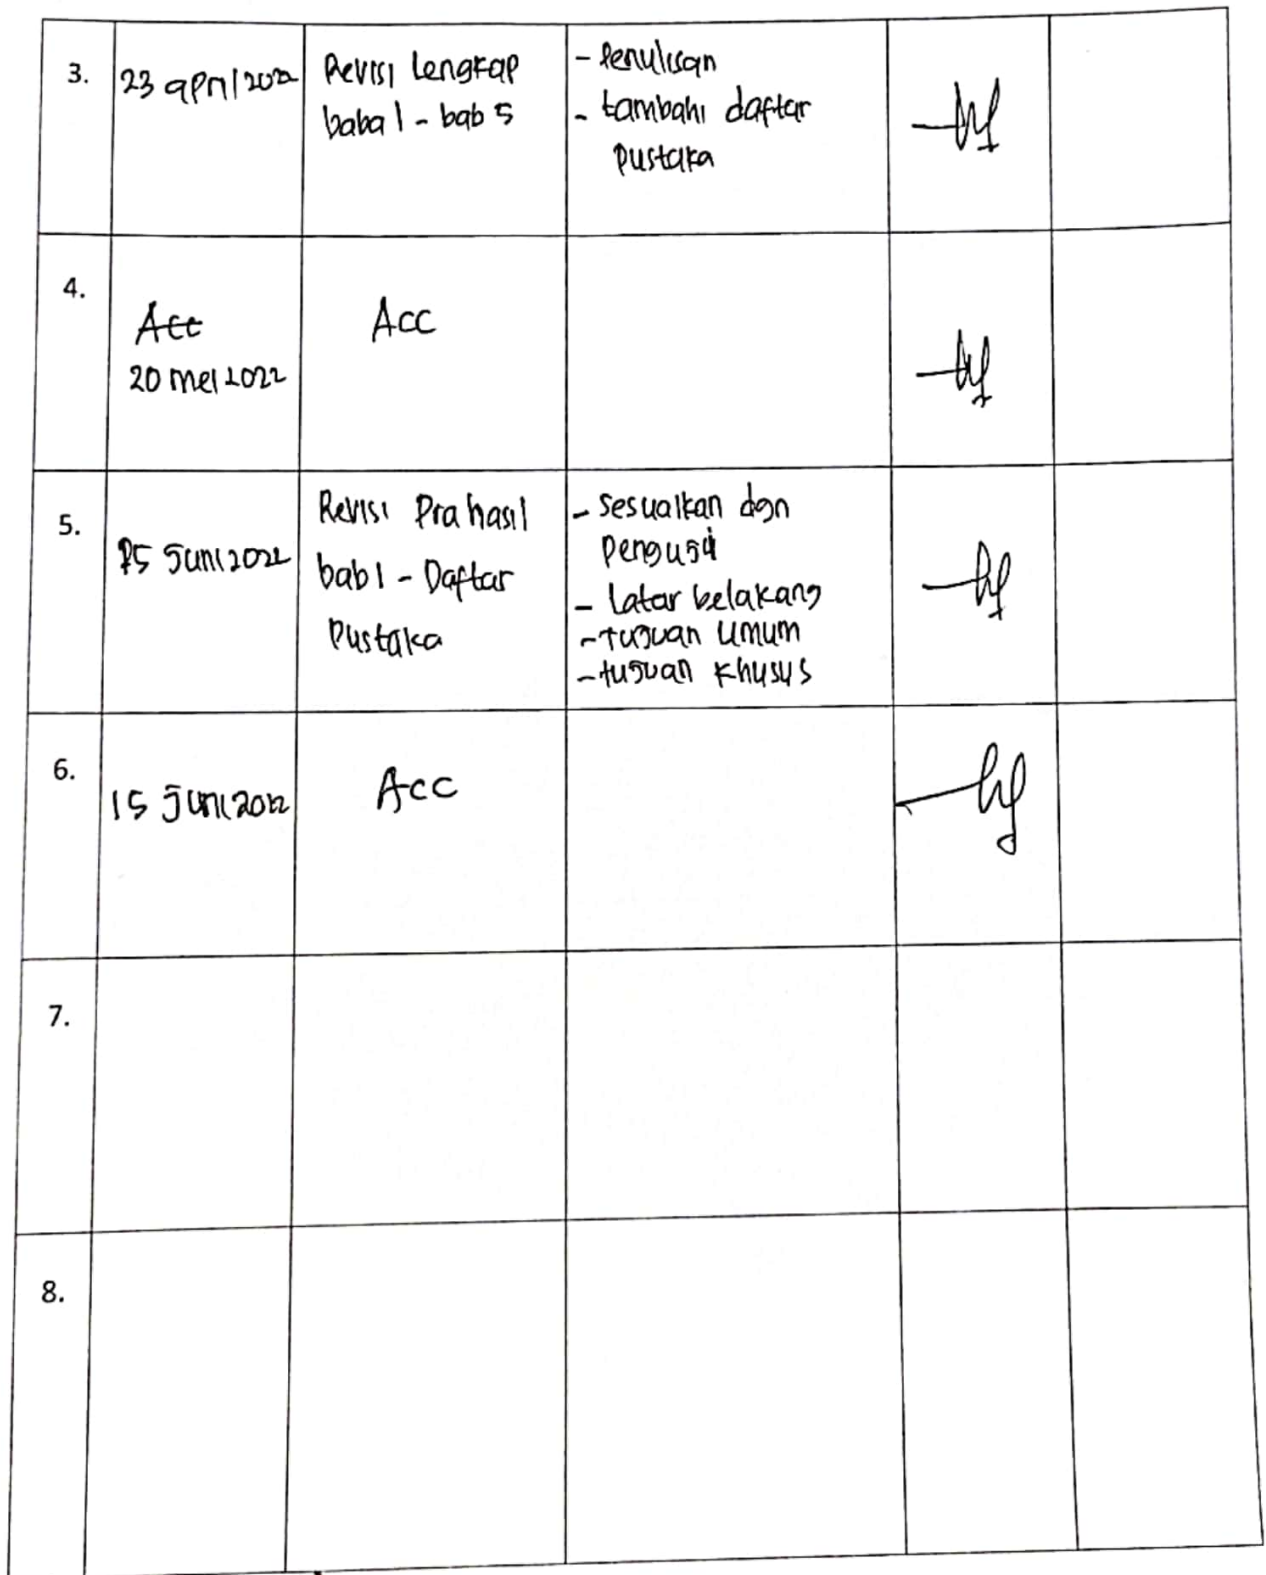 3.
23 april 2022
Revisi Lengkap
baba 1 - bab 5
- Penulisan
- tambahi daftar
Pustaka
4.
Acc
20 mei 2022
Acc
5.
Juni 2022
Revisi Pra hasil
bab 1 - Daftar
Pustaka
- Sesuaikan dgn
Penguji
- Latar belakang
- tujuan umum
- tujuan khusus
6.
15 Juni 2022
Acc
7.
8.